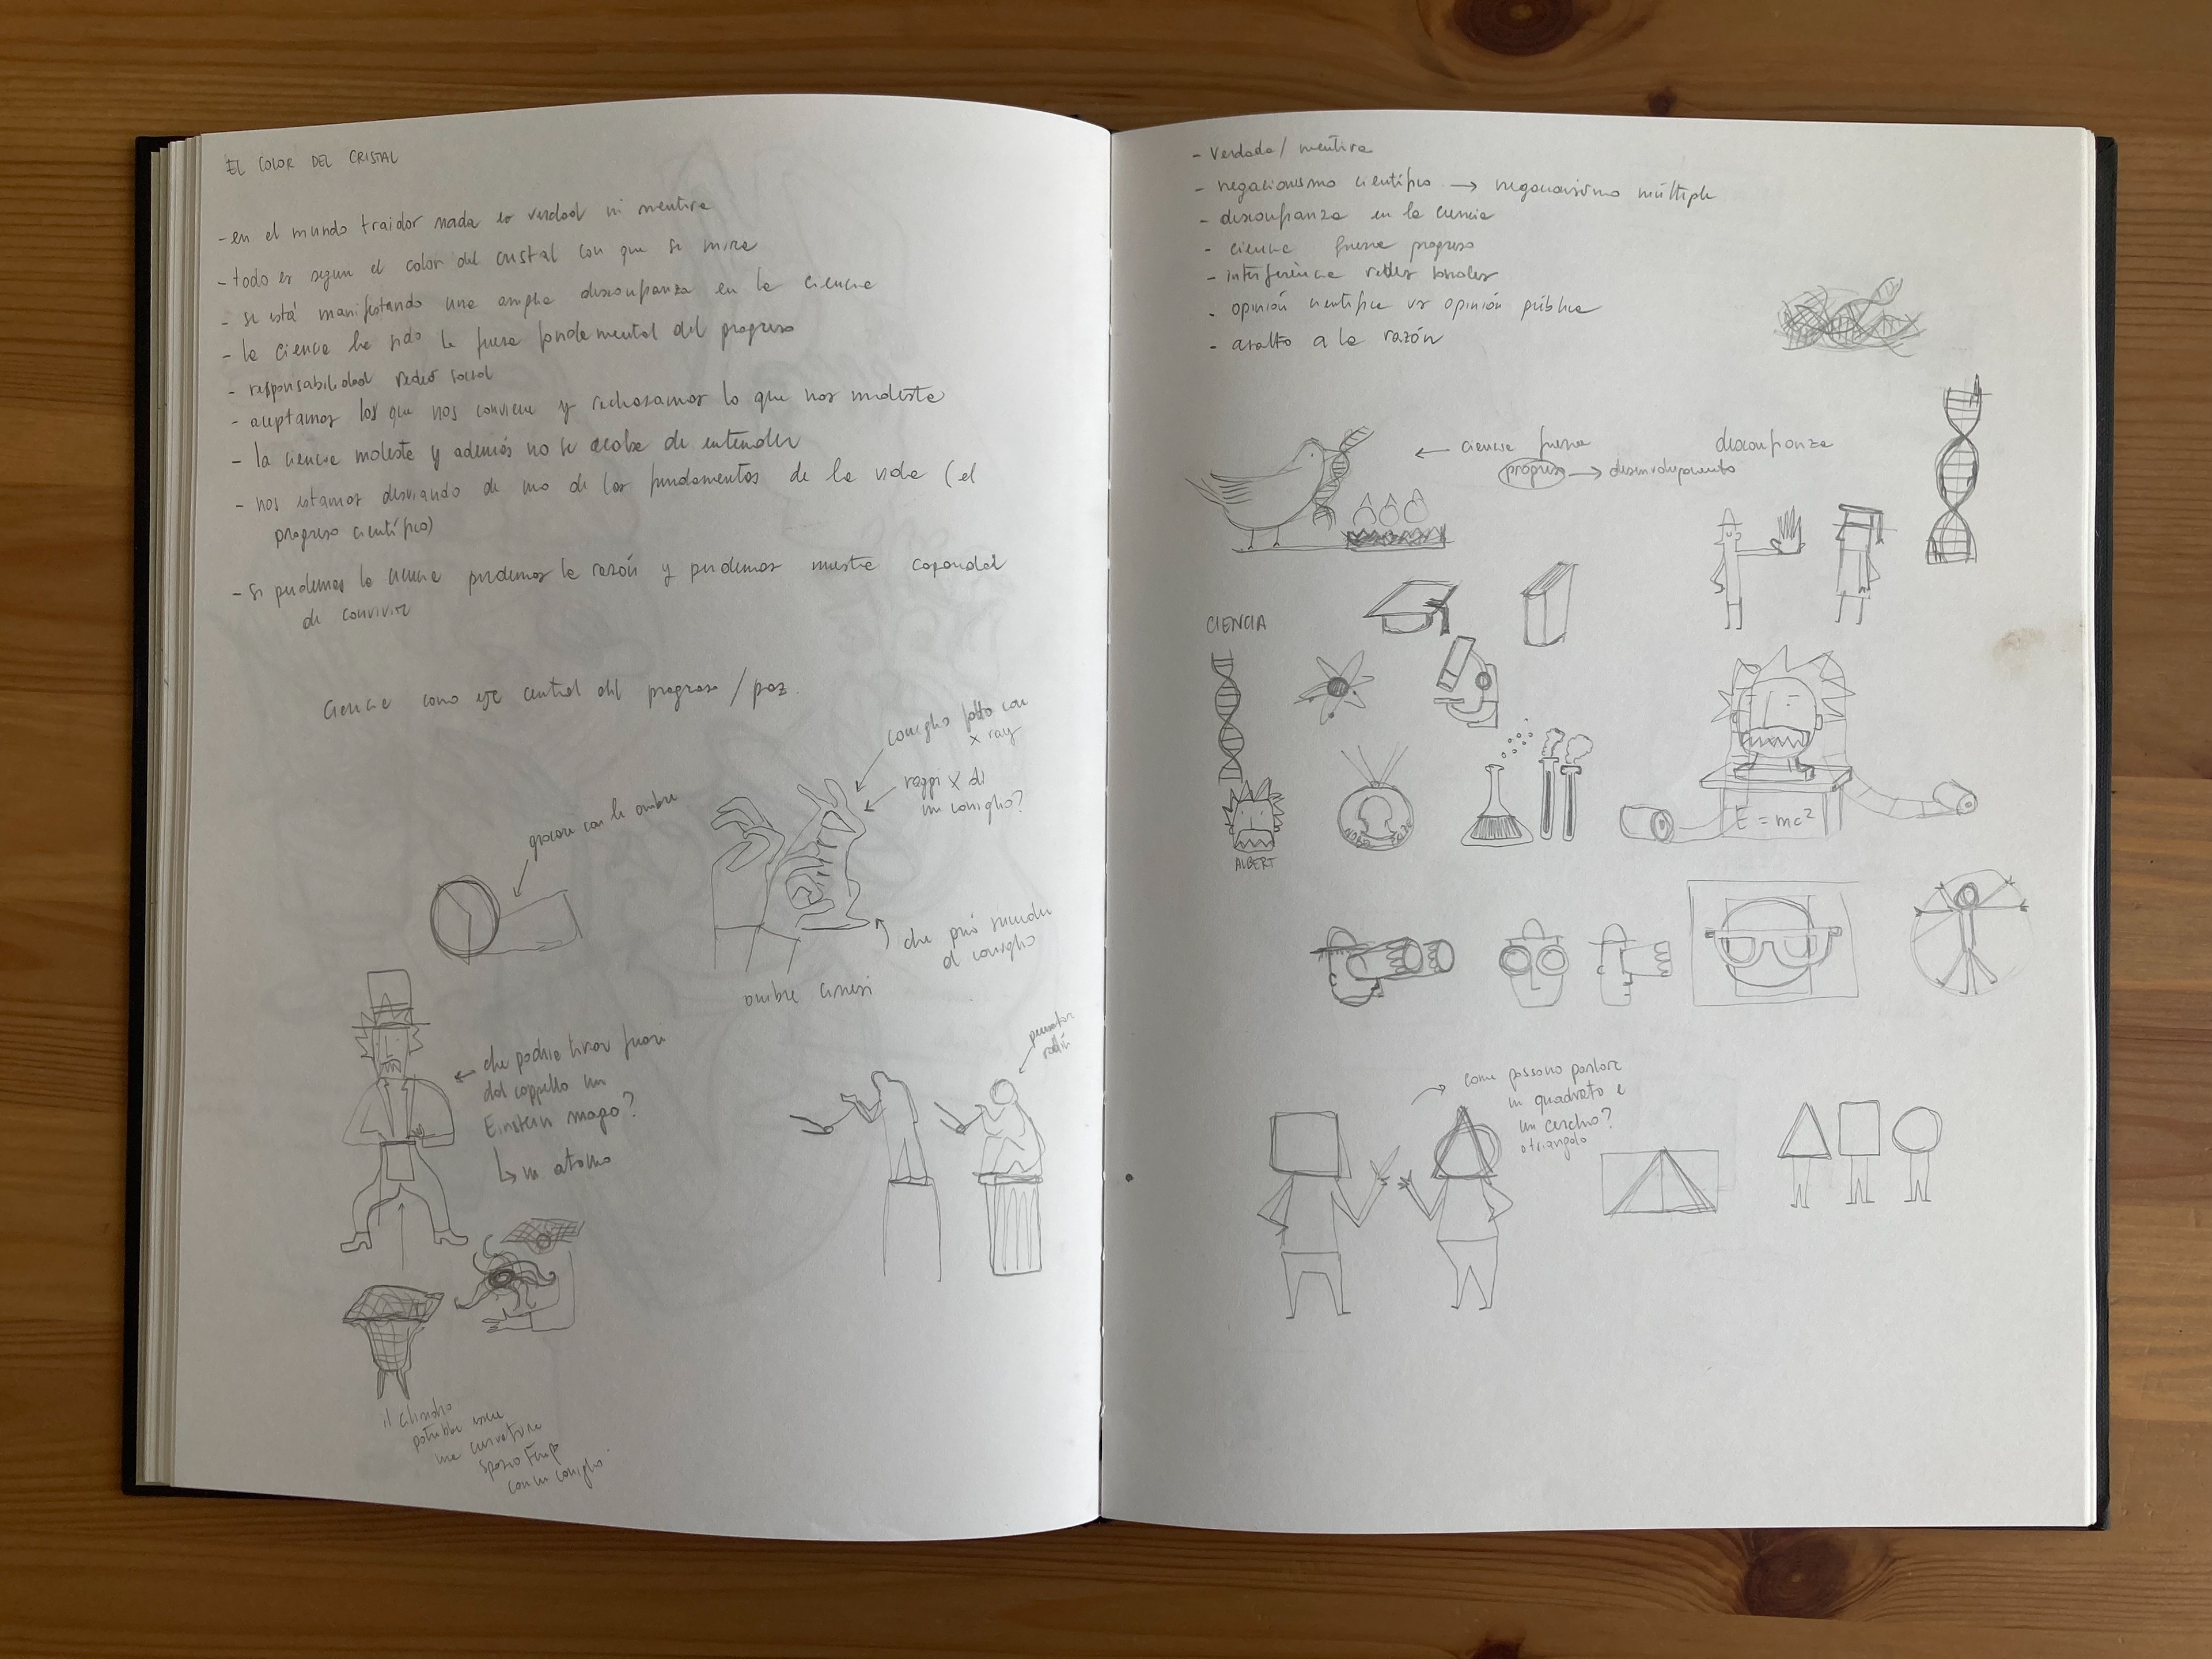 EL COLOR DEL CRISTAL
- en el mundo traidor nada es verdad ni mentira
- todo es segun el color del cristal con que se mira
- se está manifestando una amplia desconfianza en la ciencia
- la ciencia ha sido la fuerza fondamental del progreso
- responsabilidad redes social
- aceptamos los que nos conviene y rechazamos lo que nos moleste
- la ciencia moleste y además no se acaba de entender
- nos estamos desviando de uno de los fundamentos de la vida (el
progreso científico)
- si perdemos la ciencia perdemos la razón y perdemos nuestra capacidad
de convivir
Ciencia como eje central del progreso / paz.
coniglio fatto con
x ray
raggi X di
un coniglio?
giocare con le ombre
che può succeder
al coniglio
ombre cinesi
che podrie tirar fuori
dal cappello un
Einstein mago?
un atomo
pensator
rodin
il cilindro
potrebbe essere
una curvatura
spazio temp
con un coniglio
- Verdada / mentira
- negacionismo científico → negacionismo múltiple
- desconfianza en la ciencia
- ciencia fuerza progreso
- interferencia redes sociales
- opinión cientifica vs opinión pública
- asalto a la razón
← ciencia fuerza
progreso → desenvolupamento
desconfianza
CIENCIA
ALBERT
NOBEL
E = mc²
come possono parlare
un quadrato e
un cerchio?
o triangolo